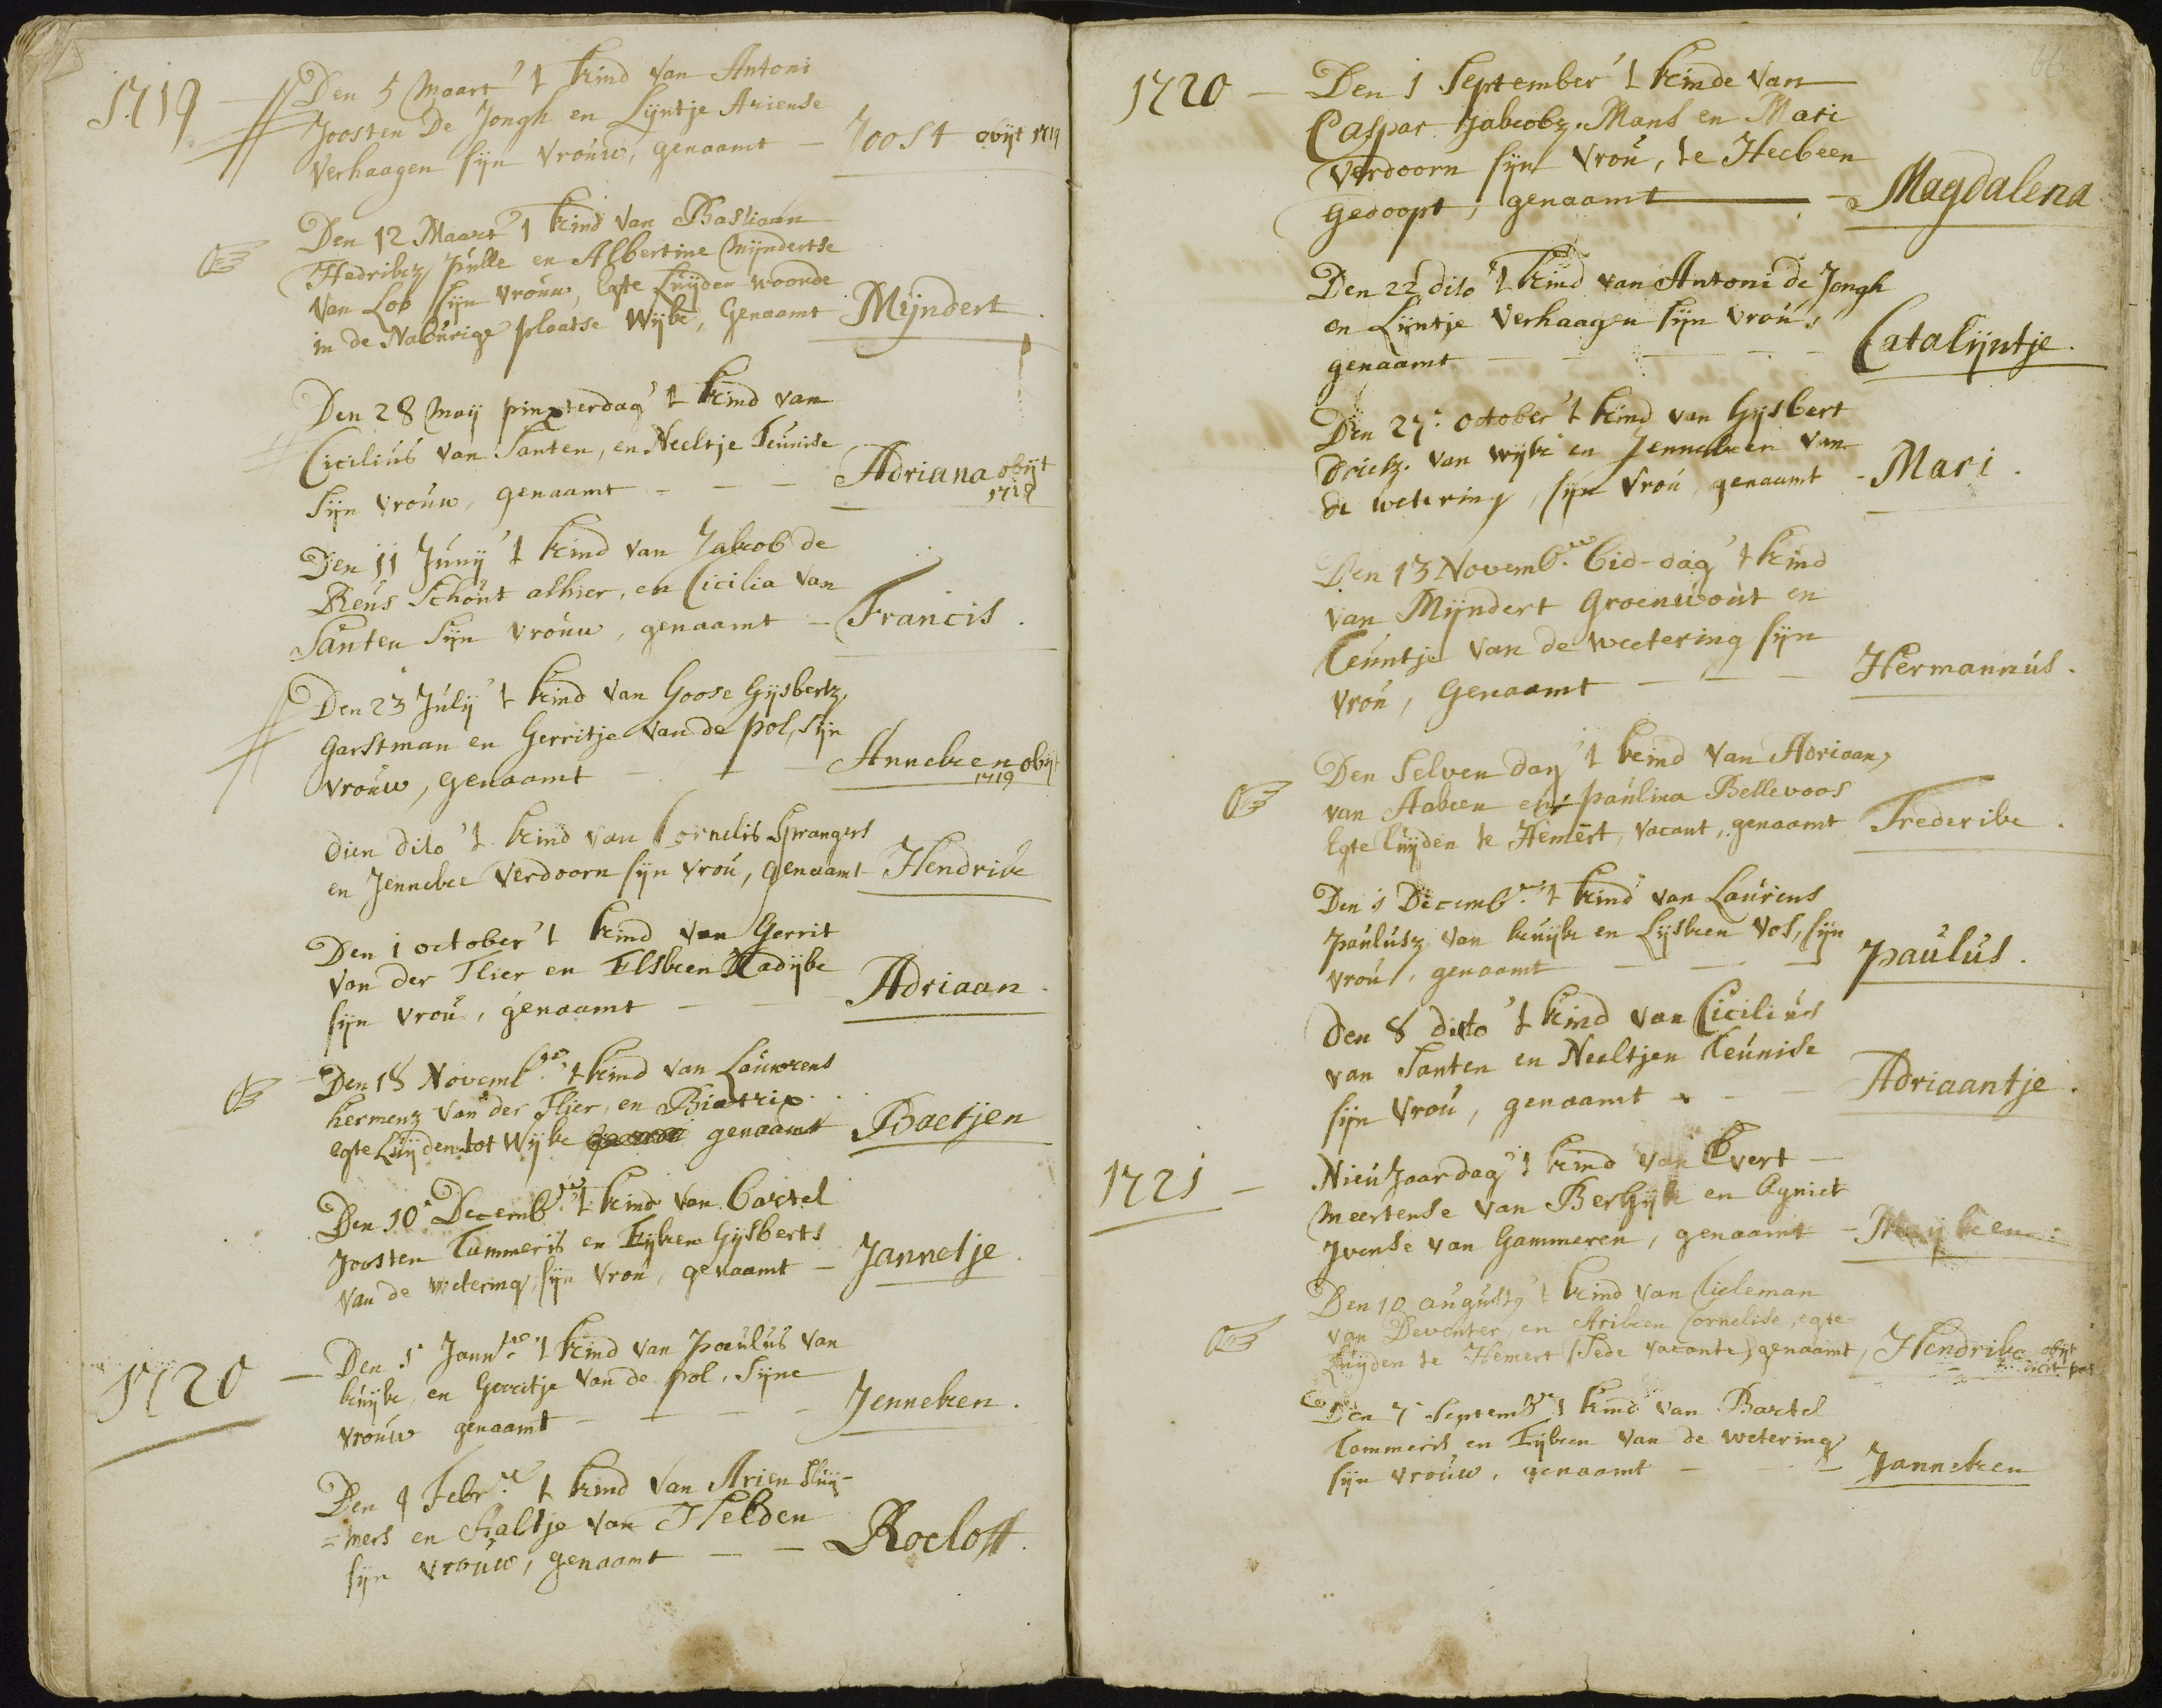 1719 — Den 5 Maart 't kind van Antoni
Joosten De Jongh en Lijntje Ariense
Verhaagen sijn Vrouw, genaamt — Joost obijt 1719
Den 12 Maart 't kind van Bastiaan
Hedrikz Pulle en Albertine Mijndertse
van Lob sijn vrouw, Egte Luijden woonde
in de Naburige plaatse Wijke, Genaamt Mijndert.
Den 28 Maij pinxterdag 't kind van
Cicilius van Santen, en Neeltje Teunise
sijn vrouw, genaamt - — — Adriana obijt
1719
Den 11 Junij 't kind van Jakob de
Reus Schout alhier, en Cicilia van
Santen sijn vrouw, genaamt — Francis.
Den 23 Julij 't kind van Goose Gijsbertz
Garstman en Gerritje van de pol, sijn
vrouw, genaamt — — — Anneken obijt
1719
dien dito 't kind van Cornelis Sprangers
en Jenneke Verdoorn sijn vrou, genaamt Hendrik
Den 1 october 't kind van Gerrit
van der Flier en Elsken Kadijke
sijn vrou, genaamt — — Adriaan.
Den 18 Novemb.re 't kind van Lauwrens
hermenz van der Flier, en Biatrix...
egte Luijden tot Wijke genaamt Baetjen
Den 10 Decemb.re 't kind van Bartel
Joosten Tammeris en Eijken Gijsberts
van de wetering sijn vrou, genaamt — Jannetje.
1720 — Den 1 Jann.re 't kind van Paulus van
kuijk en Gerritje van de pol, sijne
vrouw genaamt — — — - Jenneken.
Den 4 Febr.re 't kind van Arien Sluij-
=mers en Aaltje van Helden
sijn vrouw, genaamt — — Roeloff.
66
1720 — Den 1 September 't kinde van
Caspar Jakobz. Mans en Mari
Verdoorn sijn Vrou, te Heeken
Gedoopt, genaamt — Magdalena
Den 22 dito 't kind van Antoni de Jongh
en Lijntje Verhaagen sijn vrou,
genaamt — — — — Catalijntje.
Den 27. october 't kind van Gijsbert
Driesz. van wijk en Jenneken van
de wetering, sijn vrou, genaamt - Mari.
Den 13 Novemb.re bid-dag 't kind
van Mijndert Groenwout en
Teuntje van de weetering sijn
vrou, Genaamt — — — Hermannus.
Den selven dag 't kind van Adriaan
van Aaken en paulina Bellevoos
Egte luijden te Hemert, vacant, genaamt Frederik.
Den 1 Decemb.re 't kind van Laurens
Paulusz van kuijk en Lijsken Vos, sijn
vrou, genaamt — — — Paulus.
Den 8 dito 't kind van Cicilius
van Santen en Neeltjen Teunise
sijn Vrou, genaamt — — — Adriaantje.
1721 — NieuJaardag 't kind van Evert —
Meertense van Bergijk en Agniet
Ivense van Gammeren, genaamt - Maijken.
Den 10 augusty 't kind van Tieleman
van Deventer, en Ariken Cornelise, egte
Luijden te Hemert (Sede vacante) genaamt, Hendrik obijt
Den 7 Septemb.r 't kind van Bartel
Tammeris en Eijken van de wetering
sijn vrouw, genaamt — — — Janneken